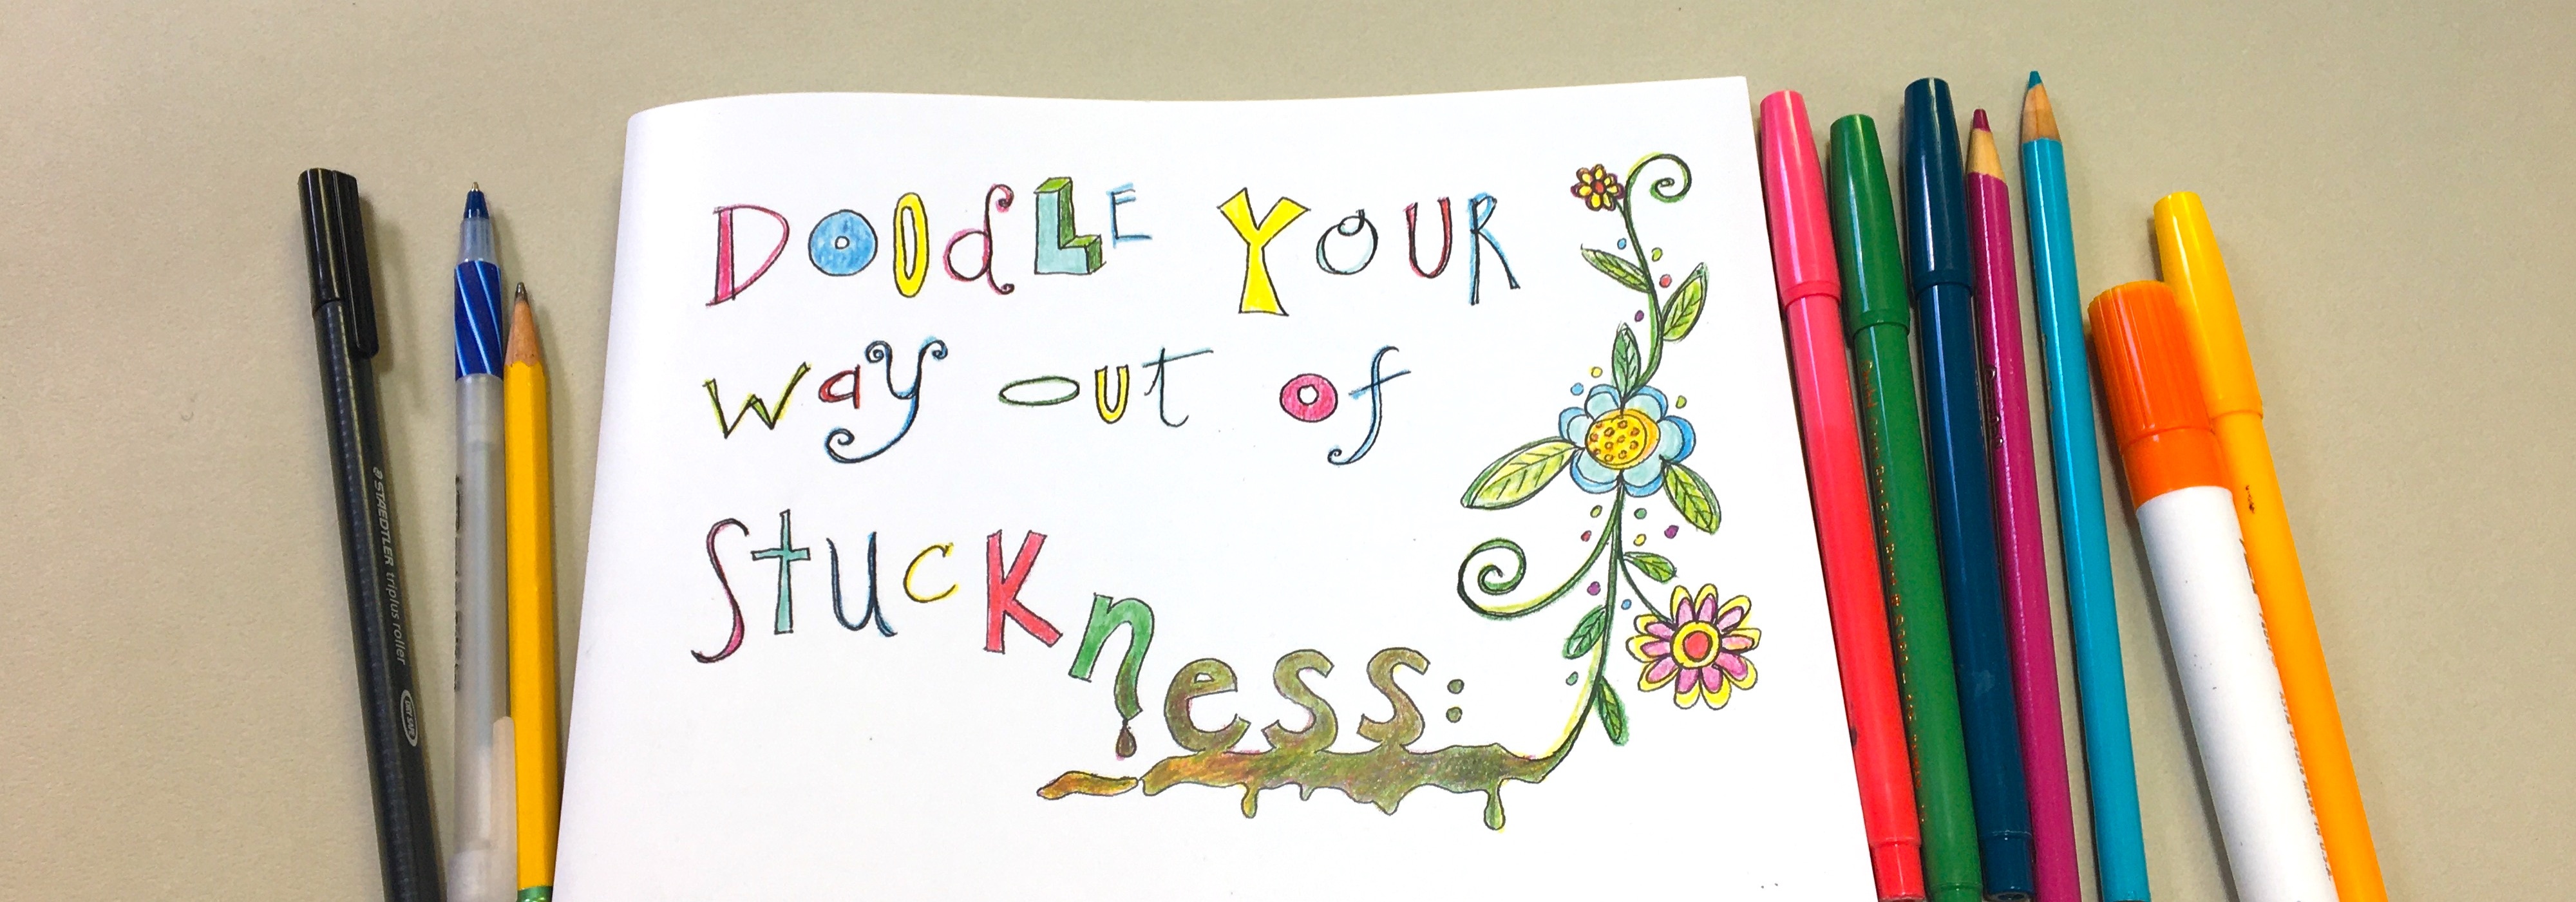 DOOdLE YOUR
way out of
Stuckness:
STAEDTLER triplus roller
DRY SAFE